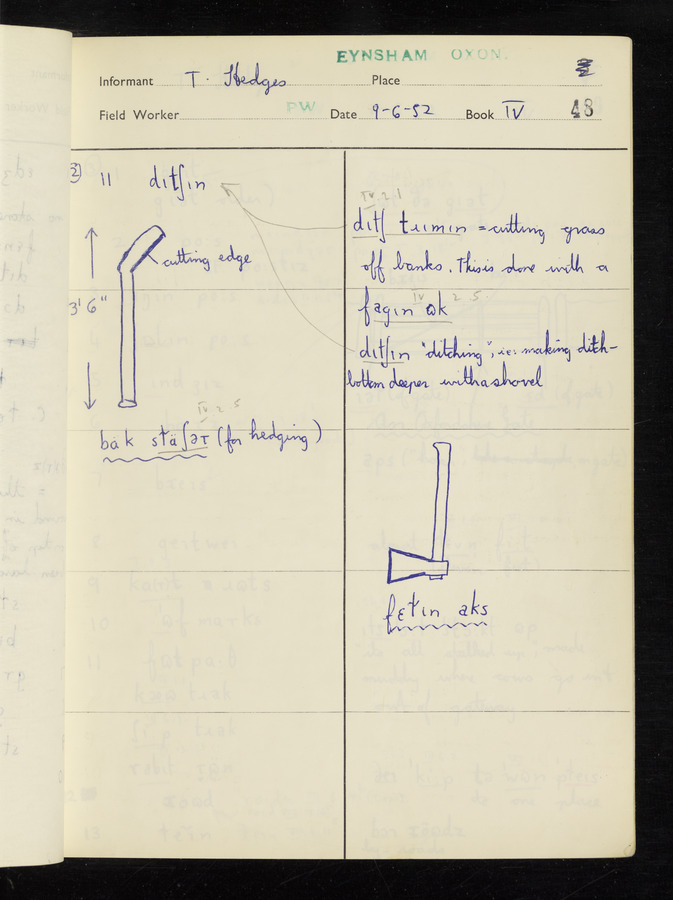 EYNSHAM OXON.
Informant T. Hedges Place
Field Worker PW Date 9-6-52 Book IV 48
2) 11 dɪtʃɪn
cutting edge
3' 6"
IV 2 5
bäk stäʃəɾ (for hedging)
IV 2 1
dɪtʃ tɹɪmɪn = cutting grass
off banks. This is done with a
IV 2 5.
fagɪn ɒk
dɪtʃɪn "ditching", i.e. making ditch-
bottom deeper with a shovel
fɛtɪn aks